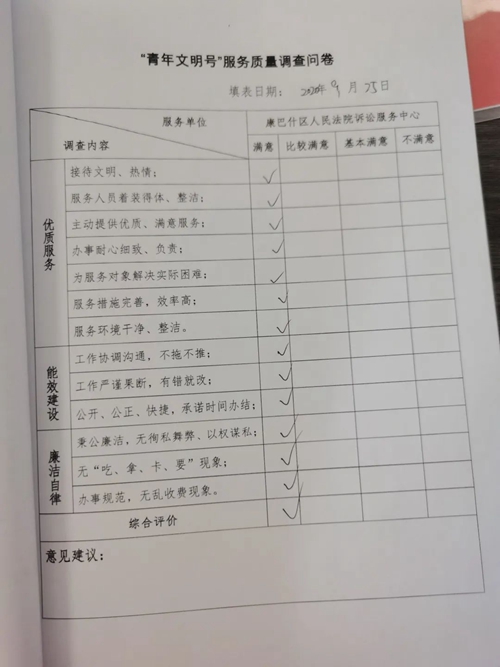 “青年文明号”服务质量调查问卷
填表日期： 2020年9月25日
服务单位
康巴什区人民法院诉讼服务中心
调查内容
满意 比较满意 基本满意 不满意
优质服务
接待文明、热情； ✓
服务人员着装得体、整洁； ✓
主动提供优质、满意服务； ✓
办事耐心细致、负责； ✓
为服务对象解决实际困难； ✓
服务措施完善，效率高； ✓
服务环境干净、整洁。 ✓
能效建设
工作协调沟通，不拖不推； ✓
工作严谨果断，有错就改； ✓
公开、公正、快捷，承诺时间办结； ✓
廉洁自律
秉公廉洁，无徇私舞弊、以权谋私； ✓
无“吃、拿、卡、要”现象； ✓
办事规范，无乱收费现象。 ✓
综合评价 ✓
意见建议：